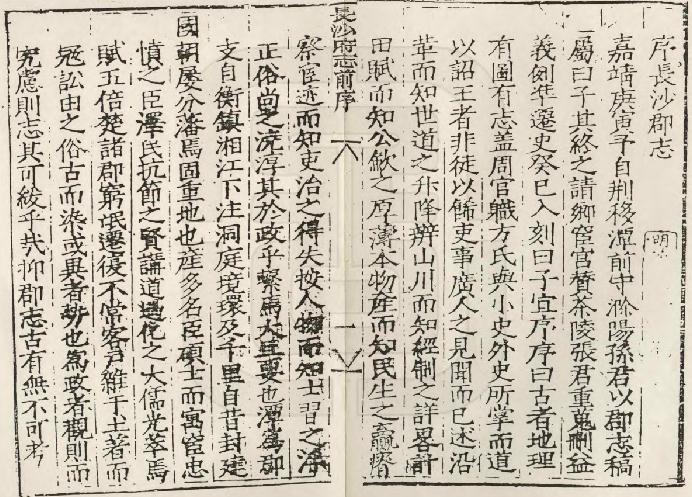 序長沙郡志
嘉靖庚寅予自荆移潭前中滁陽孫君以郡志稿
屬曰子其終之請鄉宦官贊茶陵張君重蒐刪益
義例準遷史癸巳入刻曰子宜序序曰古者地理
有圖有志盖周官職方氏與小史外史所掌而道
以詔王者非徒以餙吏事廣人之見聞而已述沿
革而知世道之升降辨山川而知經制之詳畧計
田賦而知公歛之厚薄本物産而知民生之贏瘠
長沙府志前序
一
察宦迹而知吏治之得失按人物而知士習之
正俗尚之浮其於政乎繫焉大且要也潭為郡
支自衡鎮湘江下注洞庭境環及千里自昔封建
國朝屡分藩焉固重地也産多名臣碩士而寓宦忠
憤之臣澤民抗節之賢講道過化之大儒光萃焉
賦五倍楚諸郡窮氓遷徙不常客戸雜于土著而
冦訟由之俗古而染或異者勢也為政者觀則而
究慮則志其可緩乎㢤抑郡志古有無不可考